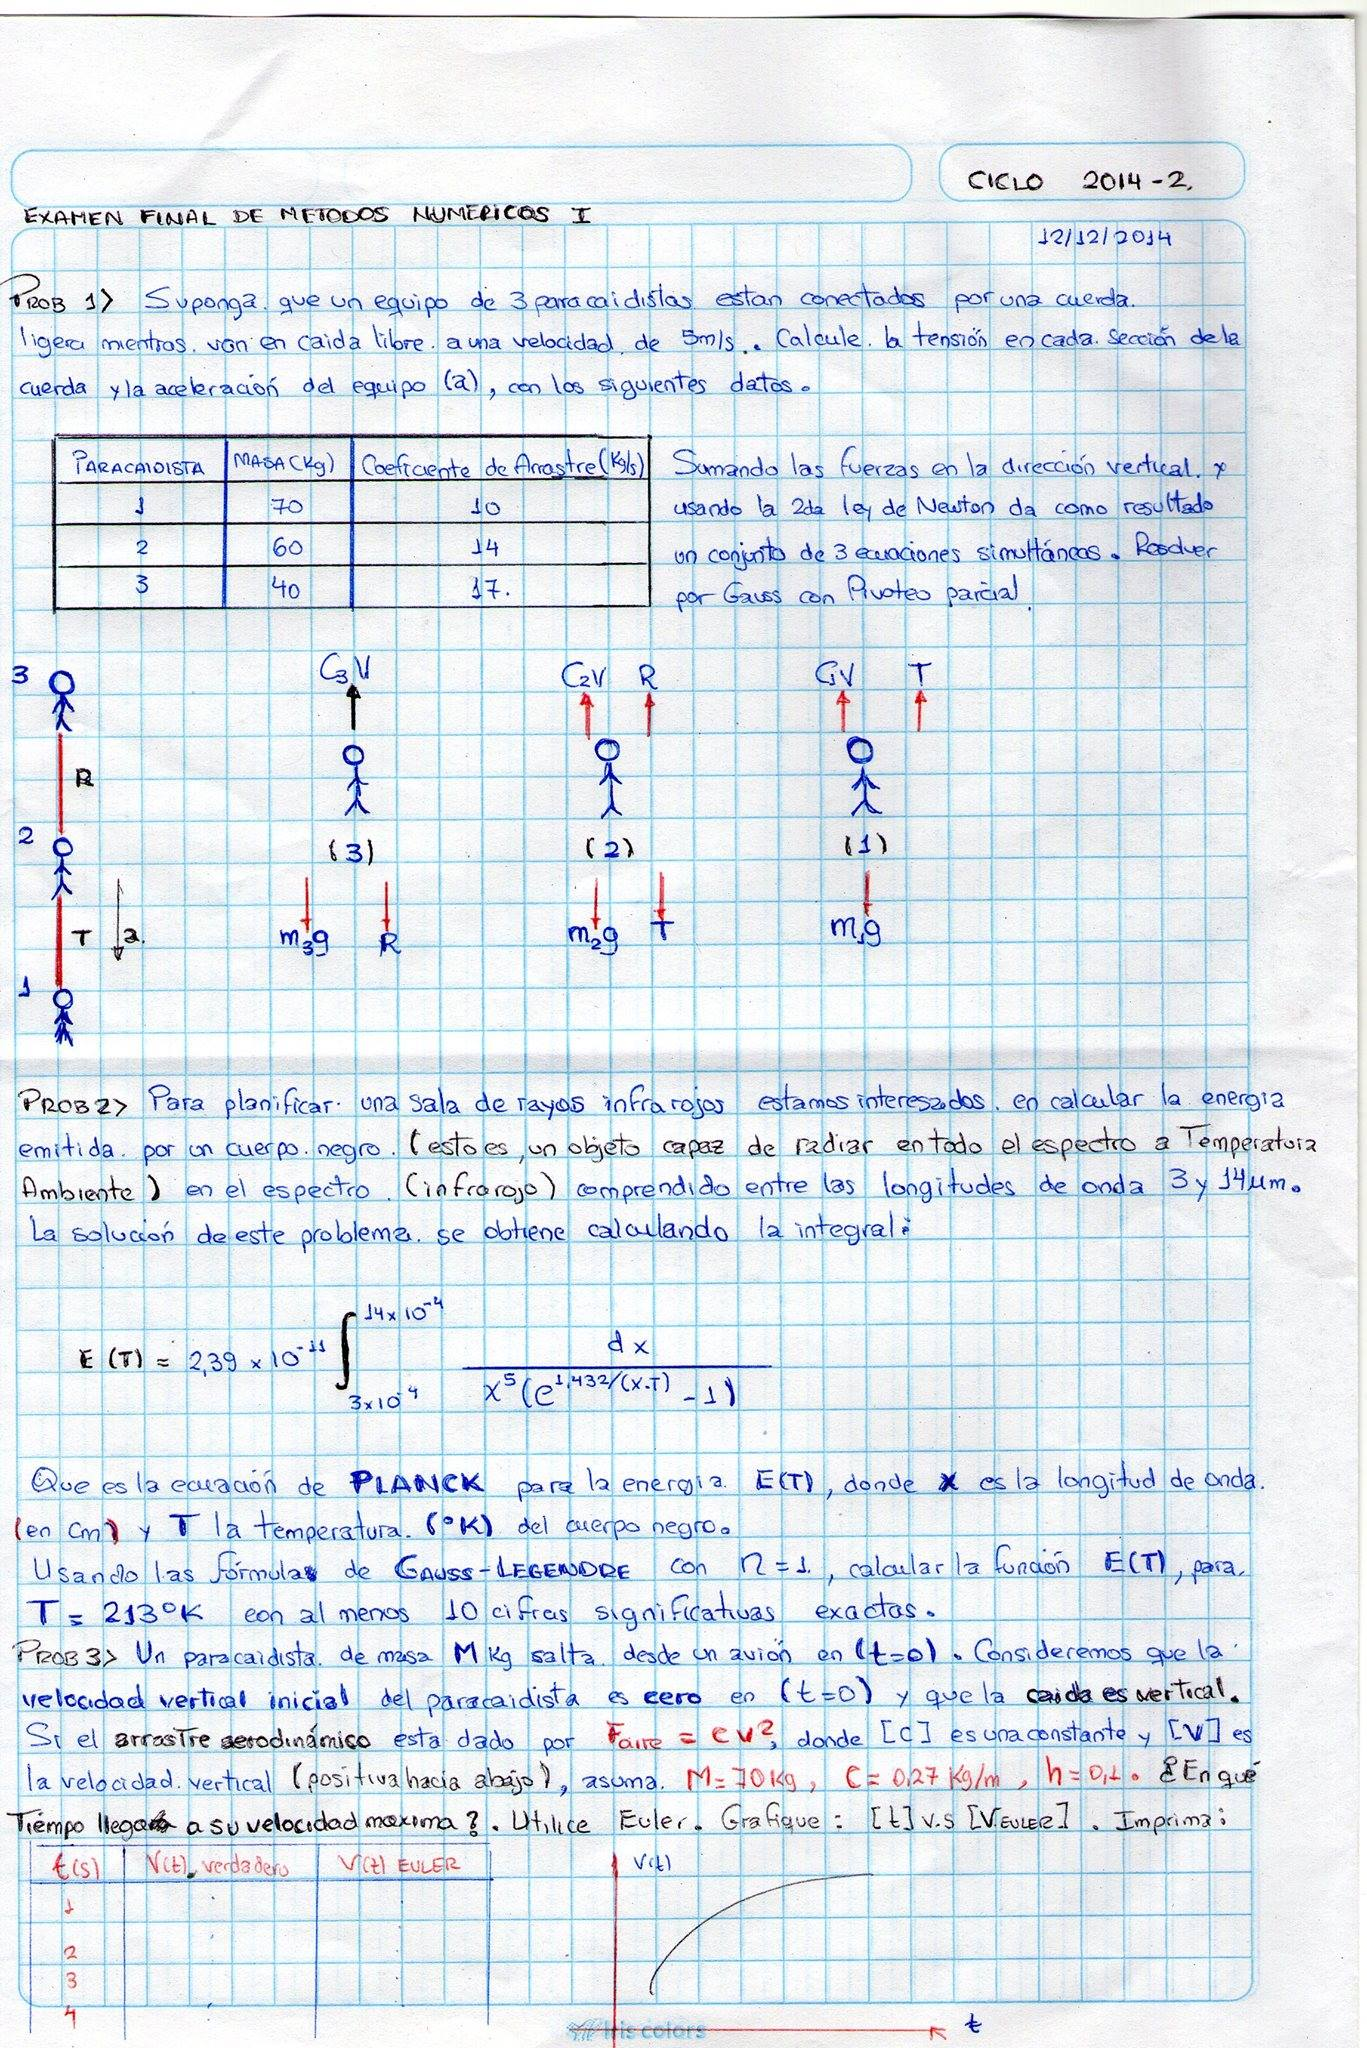 CICLO 2014-2.
EXAMEN FINAL DE METODOS NUMERICOS I
12/12/2014
PROB 1> Suponga que un equipo de 3 paracaidistas estan conectados por una cuerda.
ligera mientras van en caida libre a una velocidad de 5m/s. Calcule la tensión en cada sección de la
cuerda y la aceleración del equipo (a), con los siguientes datos.
PARACAIDISTA MASA(Kg) Coeficiente de Arrastre(Kg/s)
1 70 10
2 60 14
3 40 17.
Sumando las fuerzas en la dirección vertical. y
usando la 2da ley de Newton da como resultado
un conjunto de 3 ecuaciones simultáneas. Resolver
por Gauss con Pivoteo parcial.
3 C₃V C₂V R C₁V T
R
2 (3) (2) (1)
T a. m₃g R m₂g T m₁g
1
PROB 2> Para planificar una sala de rayos infrarojos estamos interesados en calcular la energia
emitida por un cuerpo negro. (esto es, un objeto capaz de radiar en todo el espectro a Temperatura
Ambiente) en el espectro (infrarojo) comprendido entre las longitudes de onda 3 y 14μm.
La solución de este problema se obtiene calculando la integral:
E (T) = 2,39 × 10⁻¹¹ ∫ 3×10⁻⁴ 14×10⁻⁴ dx / x⁵(e^1,432/(x.T) - 1)
Que es la ecuación de PLANCK para la energia E(T), donde x es la longitud de onda.
(en cm) y T la temperatura. (°K) del cuerpo negro.
Usando las fórmulas de GAUSS-LEGENDRE con n=1, calcular la función E(T), para
T = 213°K con al menos 10 cifras significativas exactas.
PROB 3> Un paracaidista de masa M Kg salta desde un avión en (t=0). Consideremos que la
velocidad vertical inicial del paracaidista es cero en (t=0) y que la caida es vertical.
Si el arrastre aerodinámico esta dado por Faire = cv², donde [c] es una constante y [V] es
la velocidad vertical (positiva hacia abajo), asuma. M=70Kg, C=0,27 Kg/m, h=0,1. ¿En qué
Tiempo llega a su velocidad maxima?. Utilice Euler. Grafique: [t] v.s [VEULER]. Imprima:
t(s) V(t) verdadero V(t) EULER V(t)
1
2
3
4
t
Iris colors